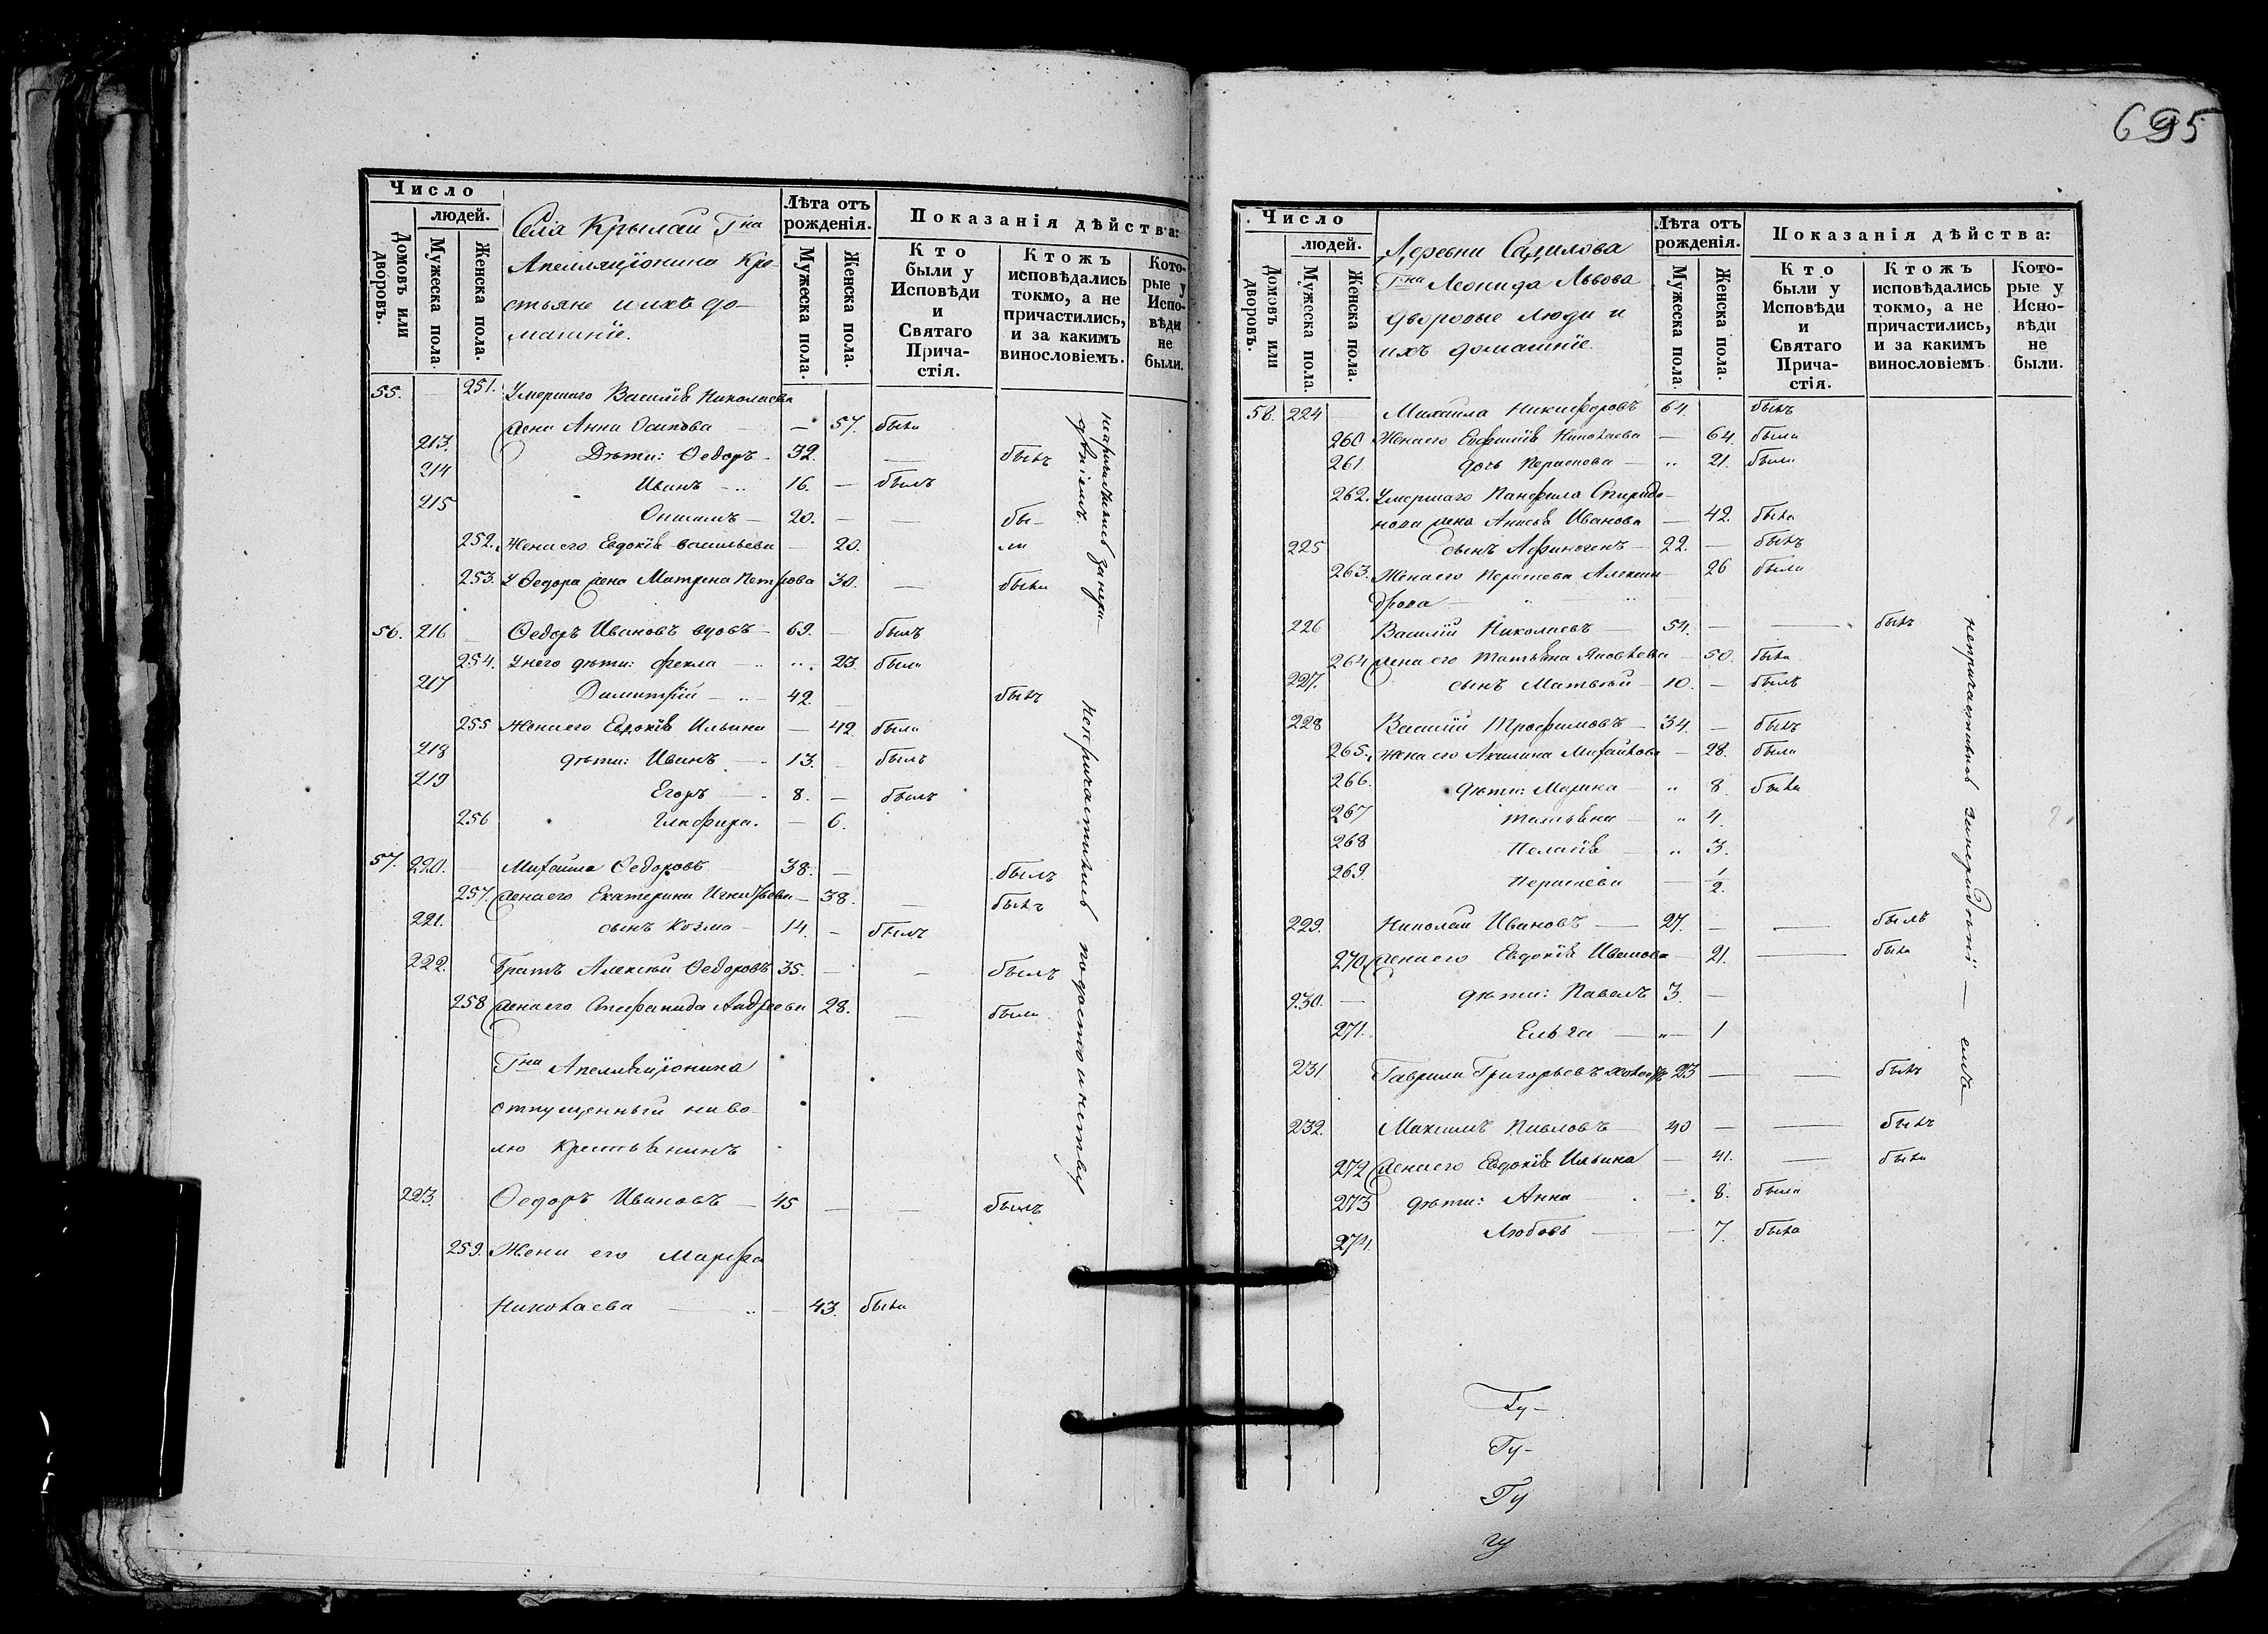 695
Число
людей.
Домовъ или дворовъ.
Мужеска пола.
Женска пола.
Села Крылаи Г-на
Апелляціонина Кре-
стьяне и ихъ до-
машніе.
Лѣта отъ рожденія.
Мужеска пола.
Женска пола.
Показанія дѣйства:
Кто были у Исповѣди и Святаго Причастія.
Ктожъ исповѣдались токмо, а не причастились, и за какимъ винословіемъ.
Которые у Исповѣди не были.
55. — 251. Умершаго Василія Николаева
жена Анна Осипова — 57. была
213. Дѣти: Ѳедоръ 32. — былъ
214 Иванъ 16. — былъ
215 Онисимъ 20. — — бы-
252. Жена его Евдокія Васильева — 20. ли
253. У Ѳедора жена Матрена Петрова 30. — была
56. 216 — Ѳедоръ Ивановъ вдовъ 69. — былъ
254. У него дѣти: Фекла 23 была
217 Димитрій 42. былъ
255 Жена его Евдокія Ильина — 42 была
218 дѣти: Иванъ 13. — былъ
219 Егоръ 8. — былъ
256 Глафира. — 6.
57. 220. Михаила Ѳедоровъ 38. — былъ
257. Жена его Екатерина Игнатьева — 38. — былъ
221. сынъ Козма 14. — былъ
222. Братъ Алексѣй Ѳедоровъ 35. — — былъ
258 Жена его Стефанида Андреева 28. — была
Г-на Апелляціонина
отпущенный на во-
лю крестьянинъ
223. Ѳедоръ Ивановъ 45 — — былъ
259. Жена его Марфа
Николаева 43. была
непричастились занера-
дѣніемъ.
непричастились
Число
людей.
Домовъ или дворовъ.
Мужеска пола.
Женска пола.
Деревни
Г-на Леонида Львова
дворовые люди и
ихъ домашніе.
Лѣта отъ рожденія.
Мужеска пола.
Женска пола.
Показанія дѣйства:
Кто были у Исповѣди и Святаго Причастія.
Ктожъ исповѣдались токмо, а не причастились, и за какимъ винословіемъ
Которые у Исповѣди не были.
58. 224 — Михаила Никифоровъ 64. былъ
260 Жена его Евфимія Николаева — 64. была
261 дочь Парасковья — 21. была
262. Умершаго Панфила Спиридо-
нова жена Анисья Иванова — 42. была
225 сынъ Афиногенъ 22. — былъ
263. Жена его Парасковья Алексан- 26 была
дрова
226 Василій Николаевъ 54. — — былъ
264 жена его Татьяна Яковлева — 50. была
227. сынъ Матвѣй 10. — былъ
228 Василій Трофимовъ 34. — былъ
265. жена его Акилина Михайлова — 28. была
266. дѣти: Марина 8. была
267 Татьяна 4.
268 Пелагія 3.
269 Парасковья — 1/2.
229. Николай Ивановъ 27. — — былъ
270. жена его Евдокія Иванова 21. — была
230. — дѣти: Павелъ 3. —
271. Ольга — 1
231. Гаврила Григорьевъ холостъ 23 — — былъ
232. Максимъ Павловъ 40 — — былъ
272 Жена его Евдокія Ильина — 41. — была
273 дѣти: Анна 8. была
274. Любовь — 7. была
непричастились занерадѣні — емъ
Гу-
Гу-
Гу
гу